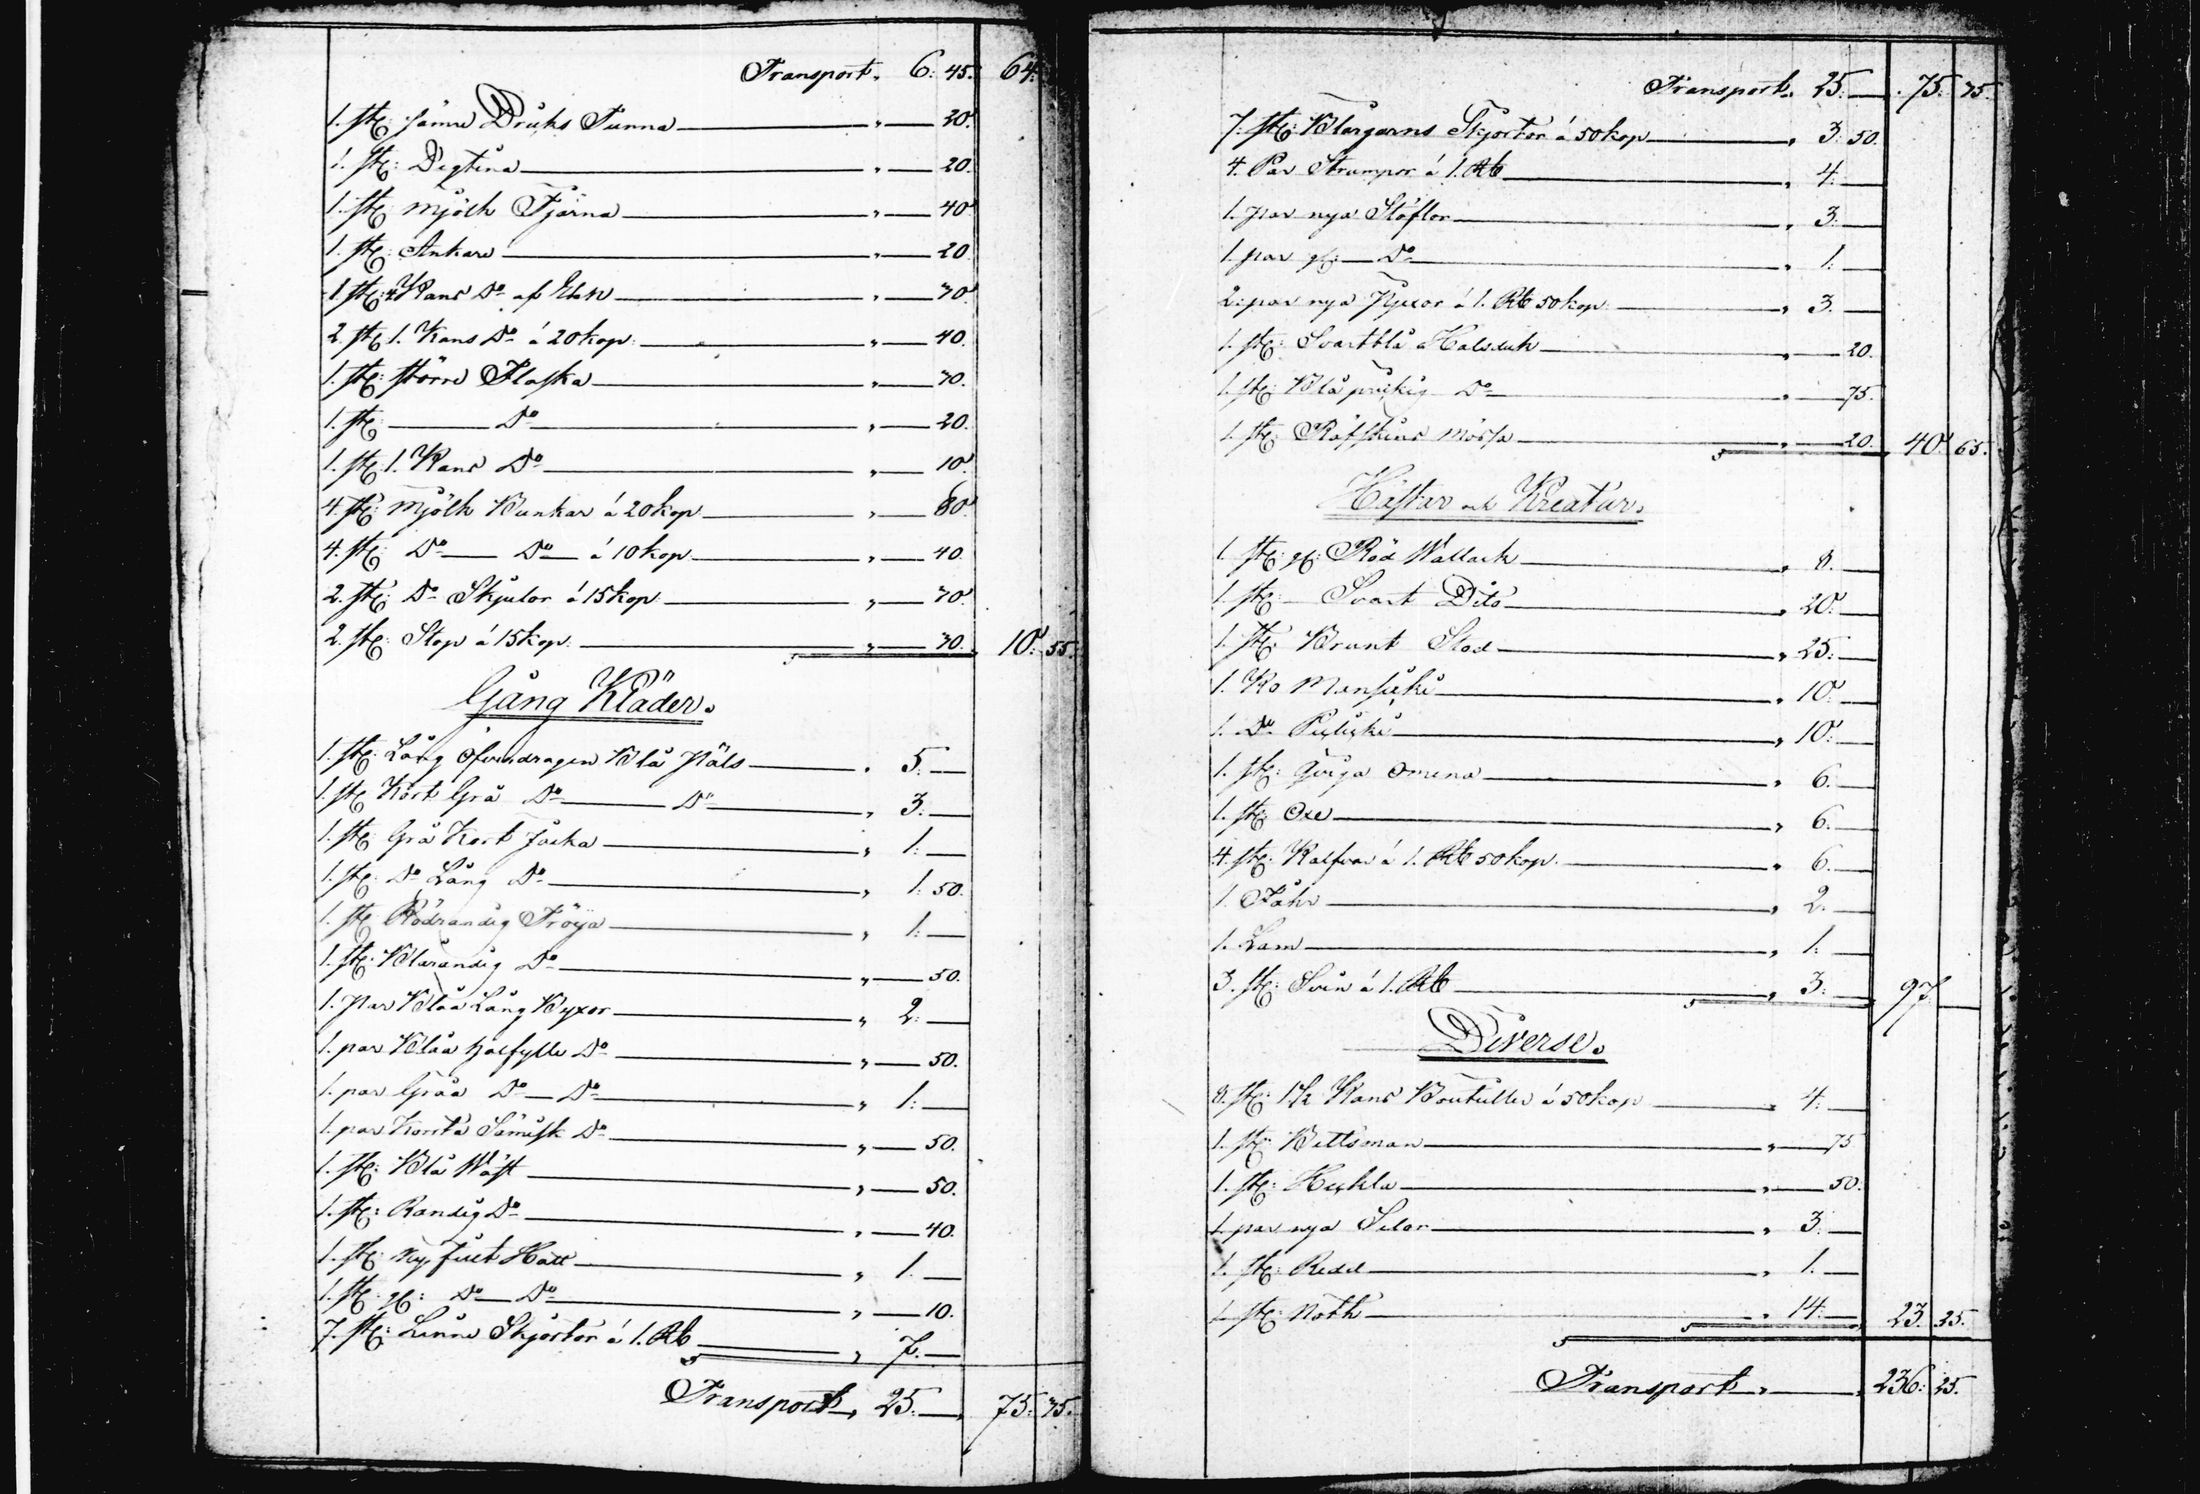 Transport. 6: 45. 64:
1. st: sämre Dricks Tunna " 30.
1. st: Degtina " 20.
1. st: Mjölk Tjärna " 40.
1. st: Ankare " 20.
1. st: 4 Kans Do af Ek " 30.
2. st: 1. Kans Do á 20 kop: " 40.
1. st: större Flaska " 30.
1. st: Do " 20.
1. st: 1. Kans Do " 10.
4. st: Mjölk Bunkar á 20 kop " 80.
4. st: Do Do á 10 kop " 40.
2. st: Do Skjulor á 15 kop " 30.
2. st: Stop á 15 kop: " 30. 10: 55.
Gång Kläder.
1. st: Lång Öfverdragen Blå Päls " 5:
1. st: Kort Grå Do Do " 3:
1. st: Grå Kort Jacka " 1:
1. st: Do Lång Do " 1: 50.
1. st: Rödrandig Tröya " 1:
1. st: Blårandig Do " 50.
1. par Blåa Lång Byxor " 2:
1. par Blåa halfylle Do " 50.
1. par Gråa Do Do " 1:
1. par Korta Sämisk Do " 50.
1. st: Blå Wäst " 50.
1. st: Randig Do " 40.
1. st: Ny filt Hatt " 1.
1. st: gl: Do Do " 10.
7. st: Linne Skjortor á 1. Rb " 7.
Transport, 25: 75: 75.
Transport. 25: 75: 75.
7. st: Blargarns Skjortor á 50 kop " 3: 50.
4. Par Strumpor á 1. Rb " 4:
1. par nya Stöflor " 3.
1. par gl: Do " 1:
2. par nya Pjexor á 1. Rb 50 kop: " 3.
1. st: Svartblå Halsduk " 20.
1. st: Blå prickig Do " 75.
1. st: Räfskins Mössa " 20. 40: 65.
Hästar och Kreatur.
1. st: gl: Röd Wallack " 8.
1. st: Svart Dito " 20:
1. st: Brunt Stod " 25:
1. Ko Mansicki " 10:
1. Do " 10:
1. st: Qviga Omena " 6.
1. st: Oxe " 6.
4. st: Kalfvar á 1. Rb 50 kop. " 6.
1. Fåhr " 2.
1. Lam " 1:
3. st: Svin á 1. Rb " 3: 97.
Diverse.
8. st: 1 1/2 Kans Bouteller á 50 kop " 4:
1. st: Bettsman " 75
1. st: Häckla " 50.
1. par nya Selar " 3.
1. st: Redd " 1.
1. st: Noth " 14: 23. 25.
Transport. 236: 25.